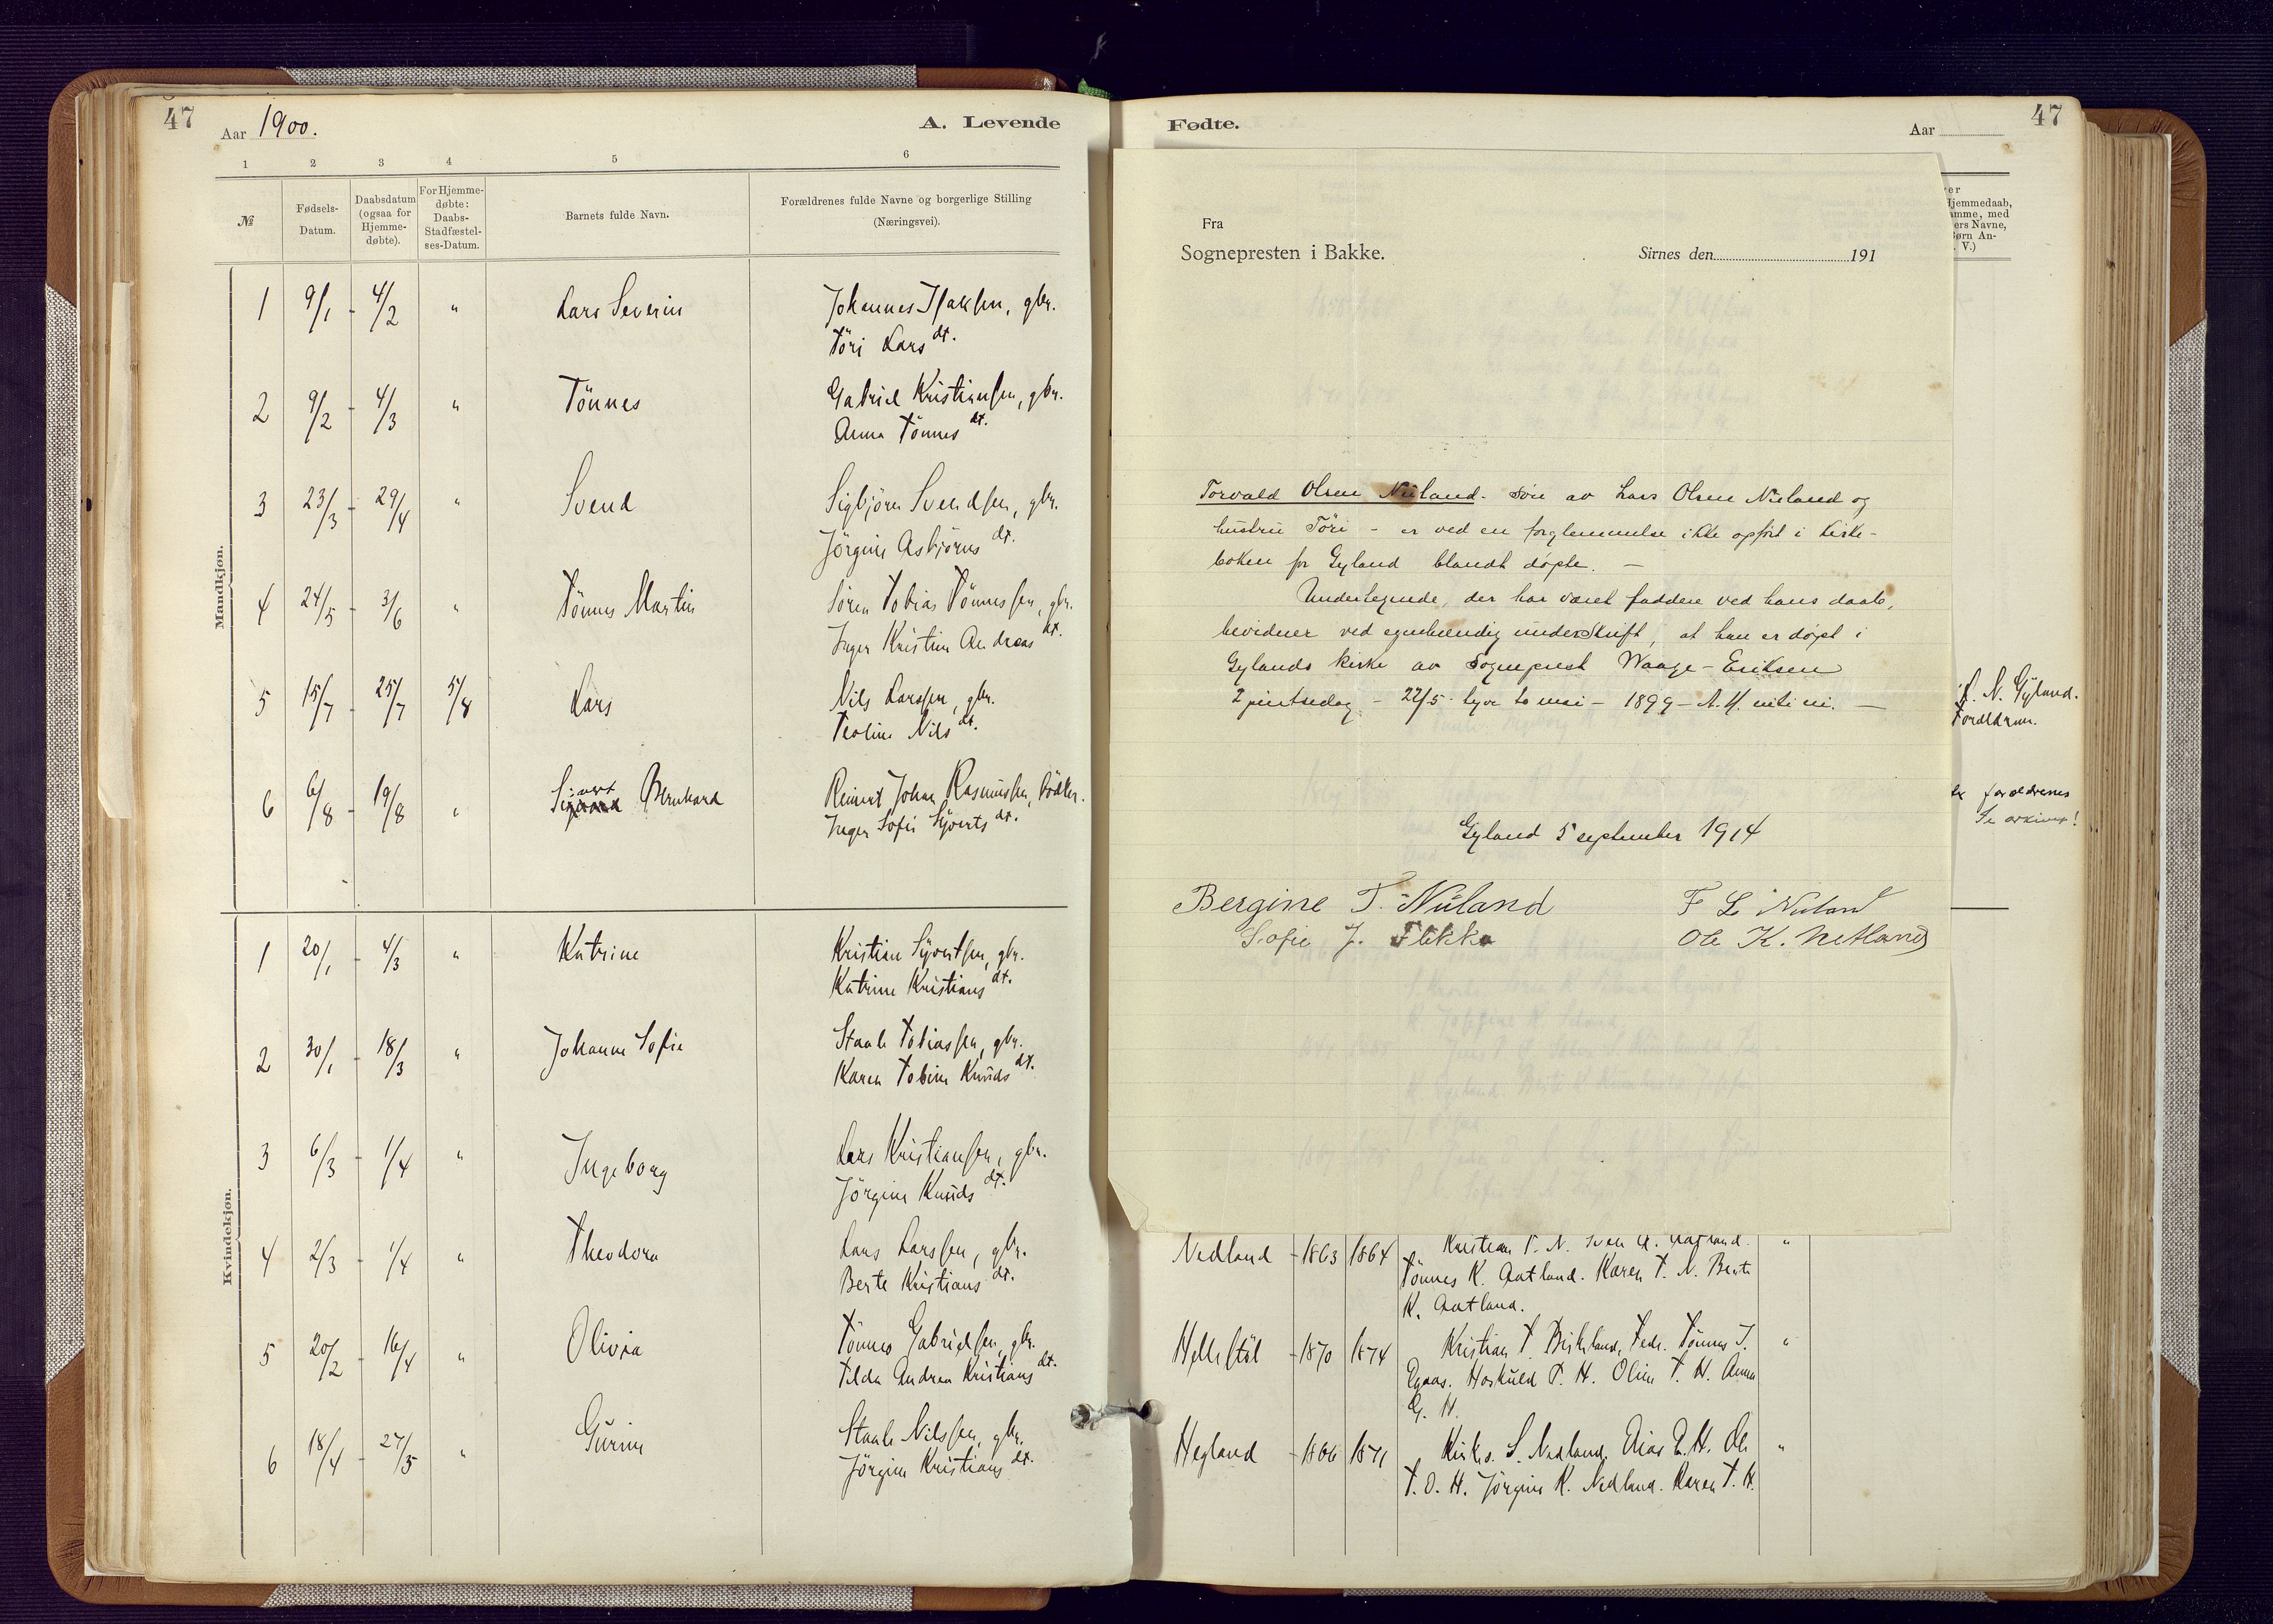 47
Aar 1900.
A. Levende
1 2 3 4 5 6
№
Fødsels-
Datum.
Daabsdatum
(ogsaa for
Hjemme-
døbte).
For Hjemme-
døbte:
Daabs-
Stadfæstel-
ses-Datum.
Barnets fulde Navn.
Forældrenes fulde Navne og borgerlige Stilling
(Næringsvei).
Mandkjøn.
1 9/1 - 4/2 " Lars Severin Johannes Isaksen, gbr.
Töri Larsdt.
2 9/2 - 4/3 " Tönnes Gabriel Kristiansen, gbr.
Anna Tönnesdt.
3 23/3 - 29/4 " Svend Sigbjörn Svendsen, gbr.
Jörgine Asbjörnsdt.
4 24/5 - 3/6 " Tönnes Martin Sören Tobias Tönnessen, gbr.
Inger Kristine Andreasdt.
5 15/7 - 25/7 5/8 Lars Nils Larssen, gbr.
Teoline Nilsdt.
6 6/8 - 19/8 " Sivert Bernhard Reinert Johan Rasmussen, Bödker.
Inger Sofie Sjövertsdt.
Kvindekjøn.
1 20/1 - 4/3 " Katrine Kristian Sjövertsen, gbr.
Katrine Kristiansdt.
2 30/1 - 18/3 " Johanne Sofie Staale Tobiassen, gbr.
Karen Tobine Knudsdt.
3 6/3 - 1/4 " Ingeborg Lars Kristiansen, gbr.
Jörgine Knudsdt.
4 2/3 - 1/4 " Theodora Lars Larssen, gbr.
Berte Kristiansdt.
5 20/2 - 16/4 " Olivia Tönnes Gabrielsen, gbr.
Tilda Andrea Kristiansdt.
6 18/4 - 27/5 " Gurine Staale Nilssen, gbr.
Jörgine Kristiansdt.
Fødte.
Aar
47
Hjemmedaab,
ers Navne,
V.)
Fra
Sognepresten i Bakke.
Sirnes den 191
Torvald Olsen Nuland - sön av Lars Olsen Nuland og
hustru Töri - er ved en forglemmelse ikke opfört i kirke-
boken for Gyland blandt döpte. -
Undertegnede, der har været faddere ved hans daab,
bevidner ved egenhendig underskrift, at han er döpt i
Gylands kirke av sogneprest Waage-Eriksen
2 pintsedag - 22/5 - tyve to mai - 1899 - A. H. niti ni. -
Gyland 5 september 1914
Bergine T. Nuland F L Nuland
Sofie J. Flikka Ole K. Netland
N. Gyland.
Forældrene.
forældrenes
Se arkivet!
Nedland - 1863 1864 Kristian T. N.
Tönnes K. Aatland. Karen T. N. Berte
K. Aatland.
Hellestöl - 1870 1874 Kristian T. Birkeland, Fedr. Tönnes J.
Hoskuld T. H. Oline T. H. Anna
G. H.
Hegland - 1866 1871 S. Nedland, Elias T. H. Ole
T. O. H. Jörgine K. Nedland. Karen T. H.